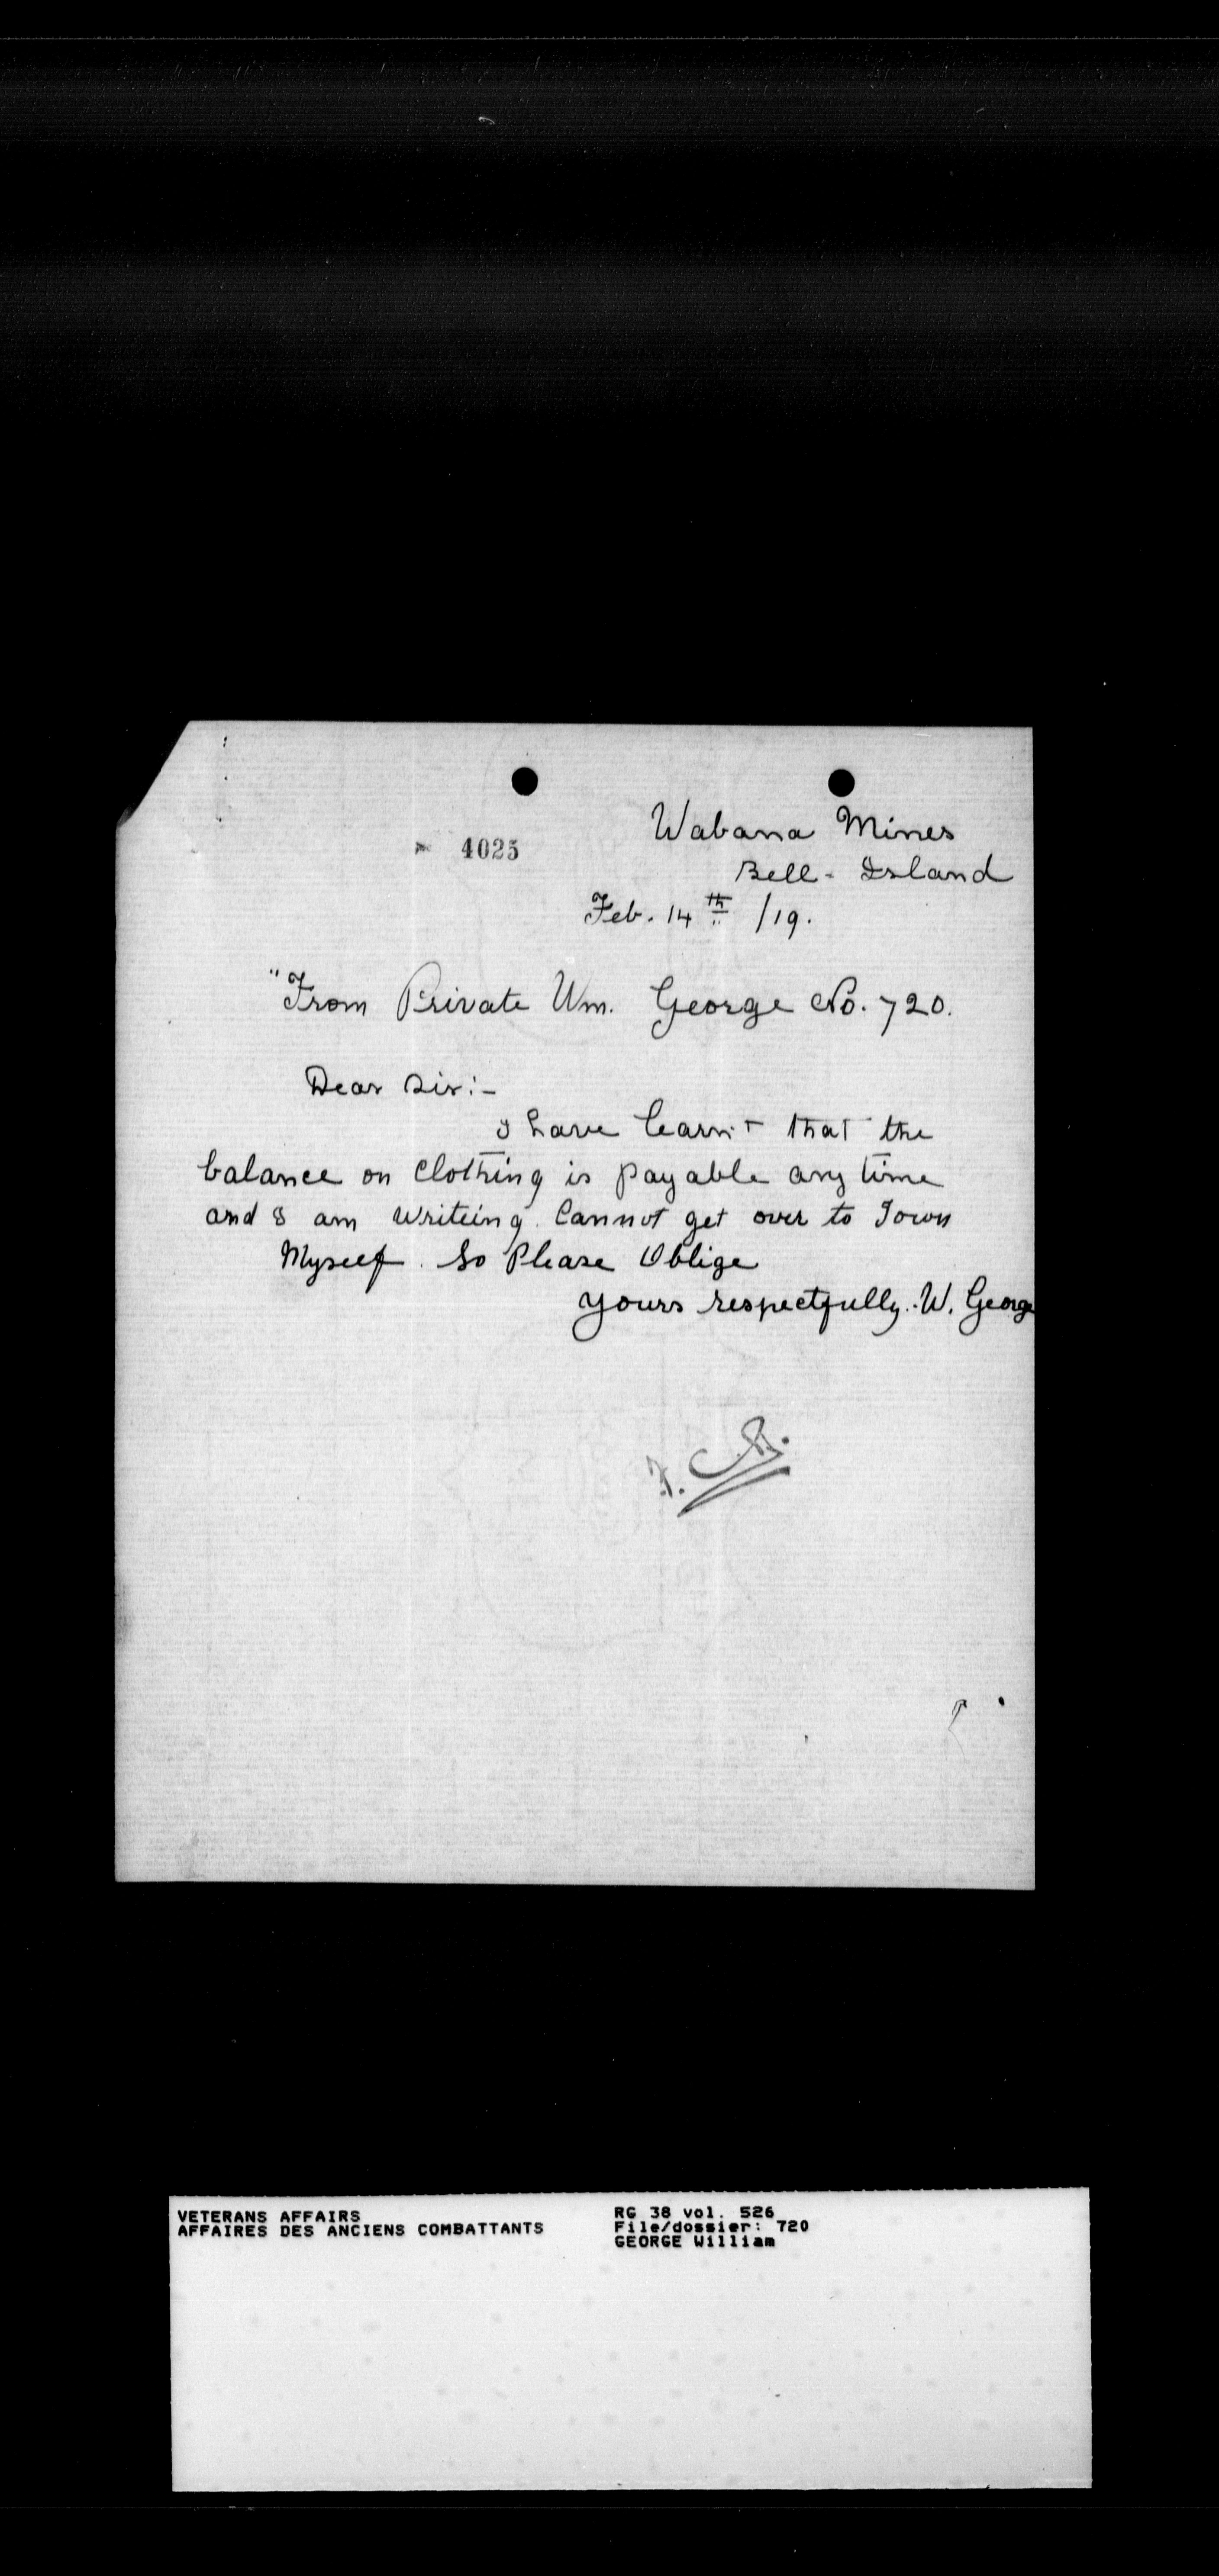 4025
Wabana Mines
Bell - Island
Feb. 14th /19.
"From Private Wm. George No. 720.
Dear Sir:-
I have learnt that the
balance on clothing is payable any time
and I am writeing. Cannot get over to Town
Myself. So Please Oblige
yours respectfully. W. George
VETERANS AFFAIRS
AFFAIRES DES ANCIENS COMBATTANTS
RG 38 vol. 526
File/dossier: 720
GEORGE William